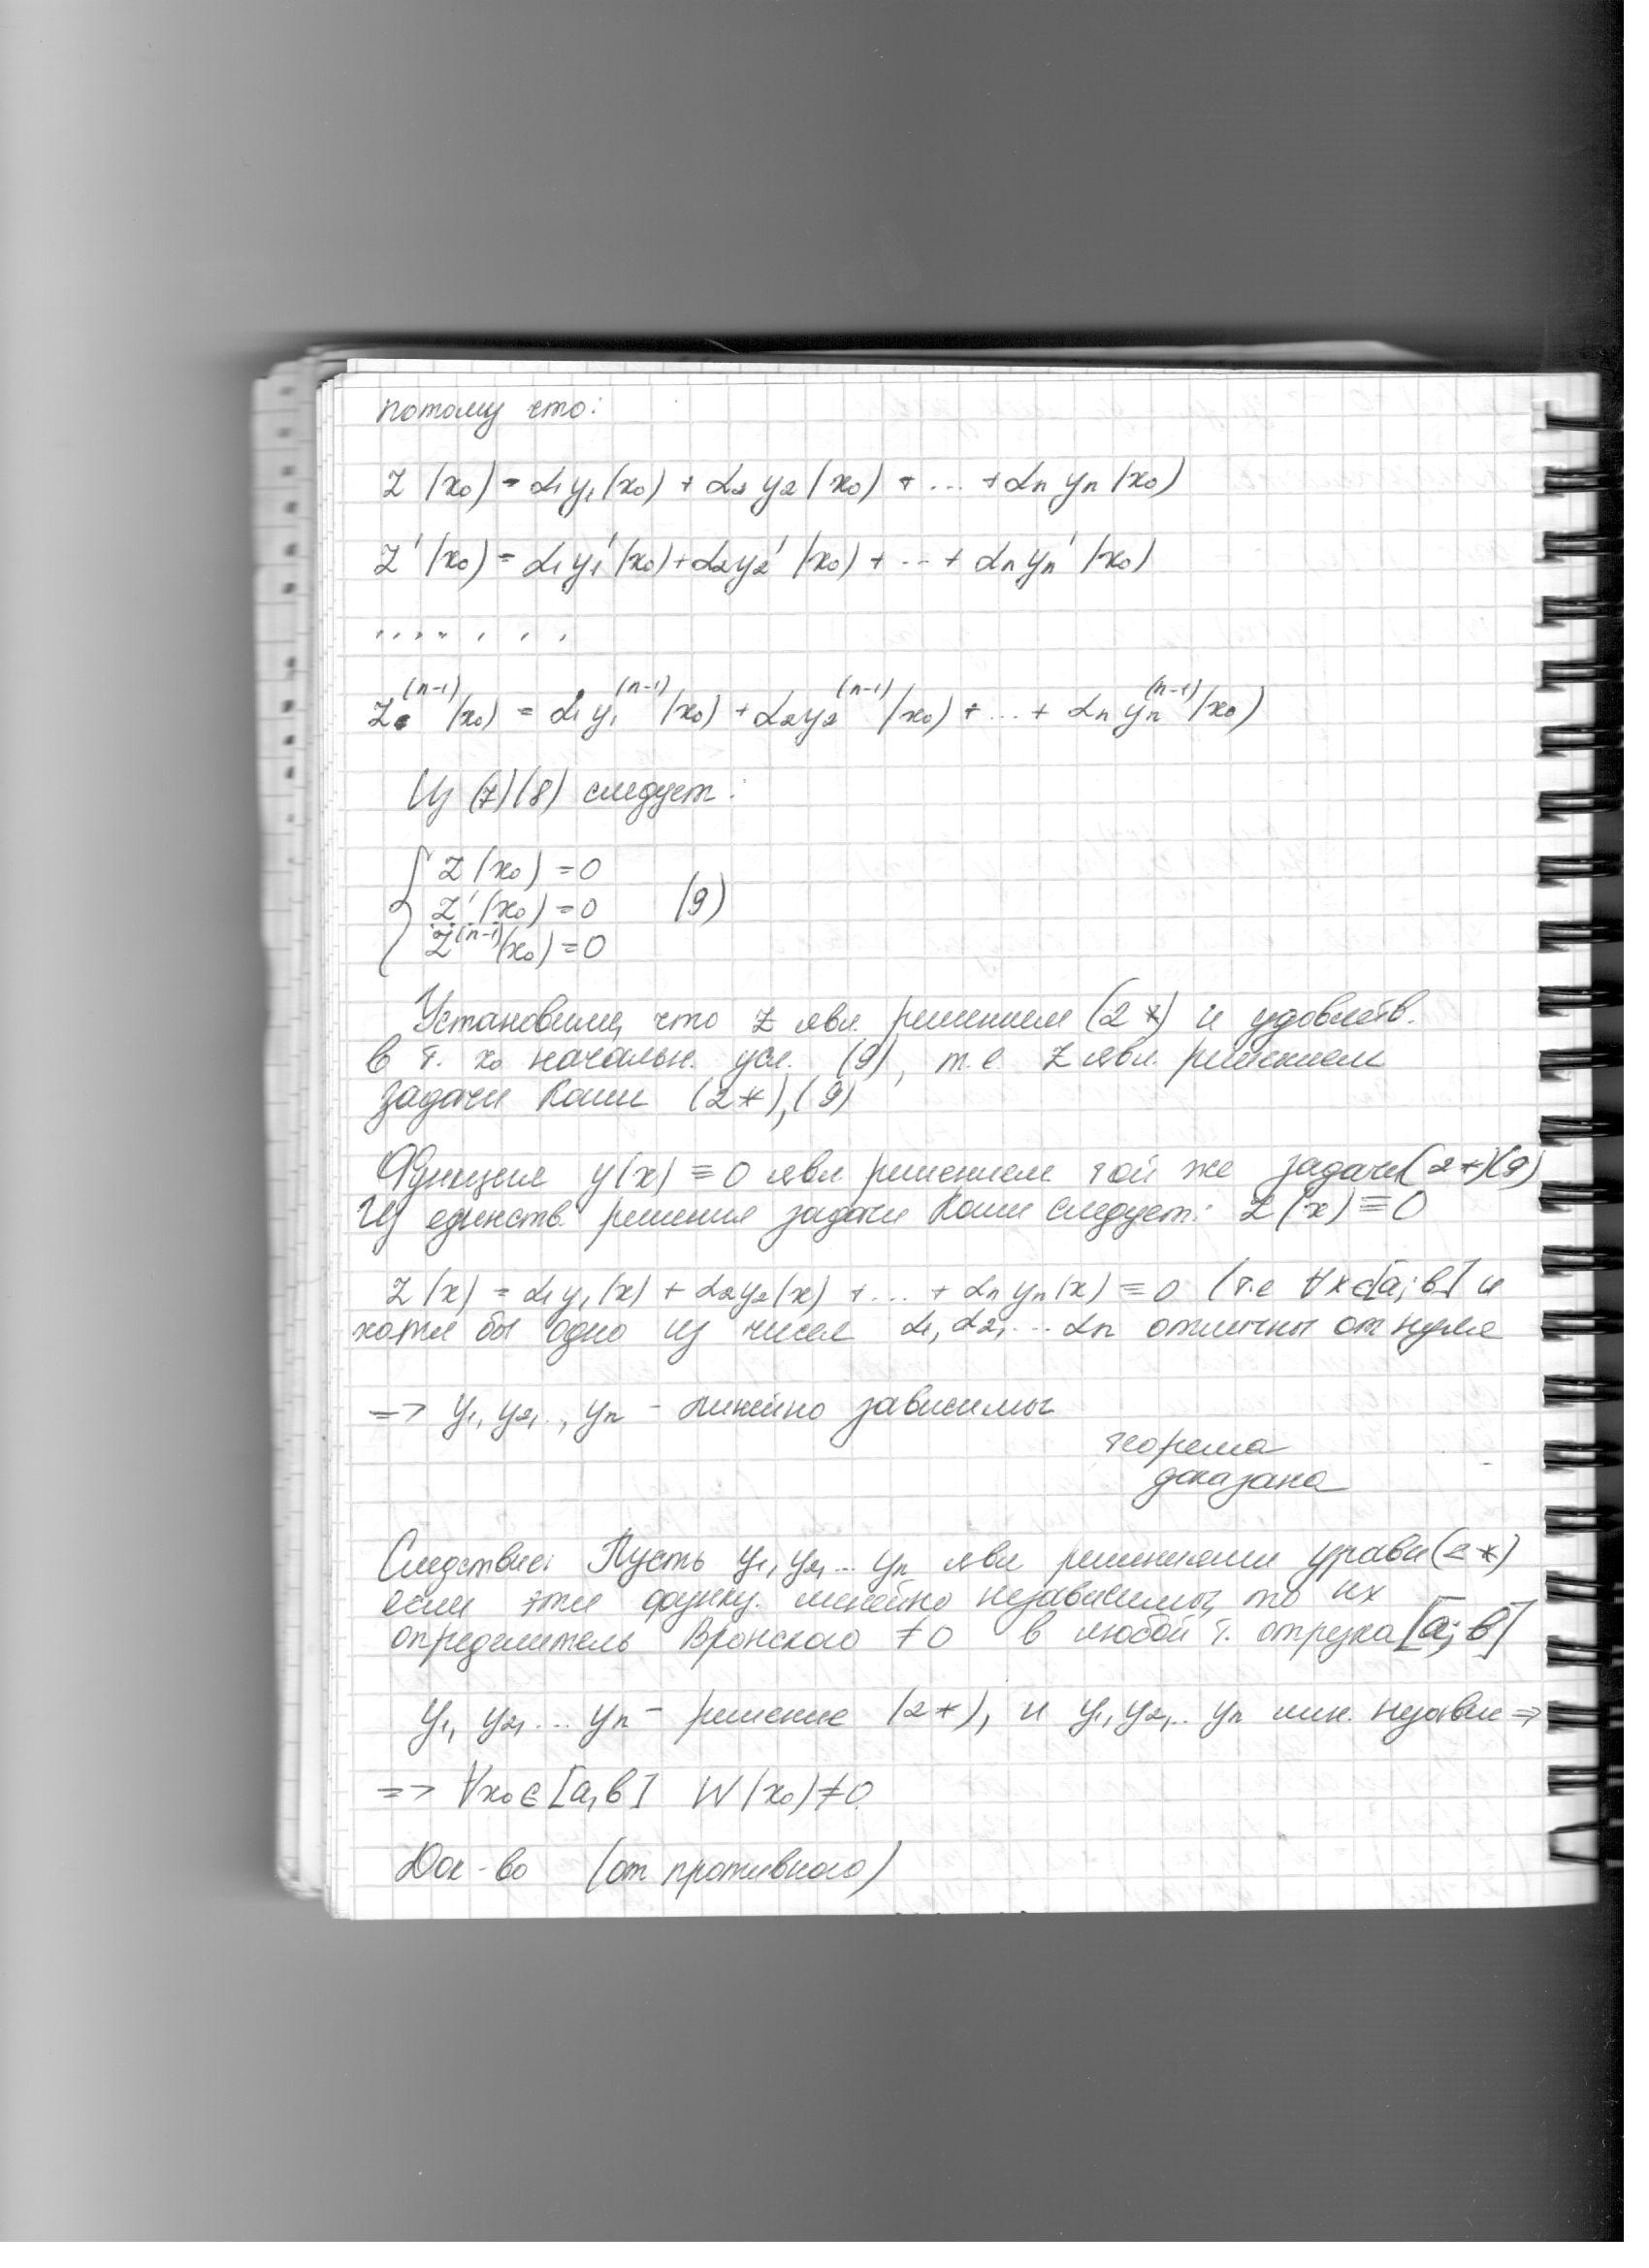 потому что:
Z(x₀) = α₁y₁(x₀) + α₂y₂(x₀) + ... + αₙyₙ(x₀)
Z'(x₀) = α₁y₁'(x₀) + α₂y₂'(x₀) + ... + αₙyₙ'(x₀)
.........
Z⁽ⁿ⁻¹⁾(x₀) = α₁y₁⁽ⁿ⁻¹⁾(x₀) + α₂y₂⁽ⁿ⁻¹⁾(x₀) + ... + αₙyₙ⁽ⁿ⁻¹⁾(x₀)
Из (7)(8) следует:
{ Z(x₀) = 0
Z'(x₀) = 0 (9)
Z⁽ⁿ⁻¹⁾(x₀) = 0
Установили, что Z явл. решением (2*) и удовлетв.
в т. x₀ начальн. усл. (9), т.е. Z явл. решением
задачи Коши (2*),(9)
Функция y(x) ≡ 0 явл решением той же задачи (2*)(9)
Из единств. решения задачи Коши следует: Z(x) ≡ 0
Z(x) = α₁y₁(x) + α₂y₂(x) + ... + αₙyₙ(x) ≡ 0 (т.е ∀x∈[a;b] и
хотя бы одно из чисел α₁, α₂, ... αₙ отличны от нуля
=> y₁, y₂, .., yₙ - линейно зависимы
теорема
доказана
Следствие: Пусть y₁, y₂, ... yₙ явл решениями уравн (2*)
если эти функц. линейно независимы, то их
определитель Вронского ≠0 в любой т. отрезка [a; b]
y₁, y₂, ... yₙ - решение (2*), и y₁, y₂, .. yₙ лин. независ =>
=> ∀x₀∈[a, b] W(x₀)≠0
Док-во (от противного)